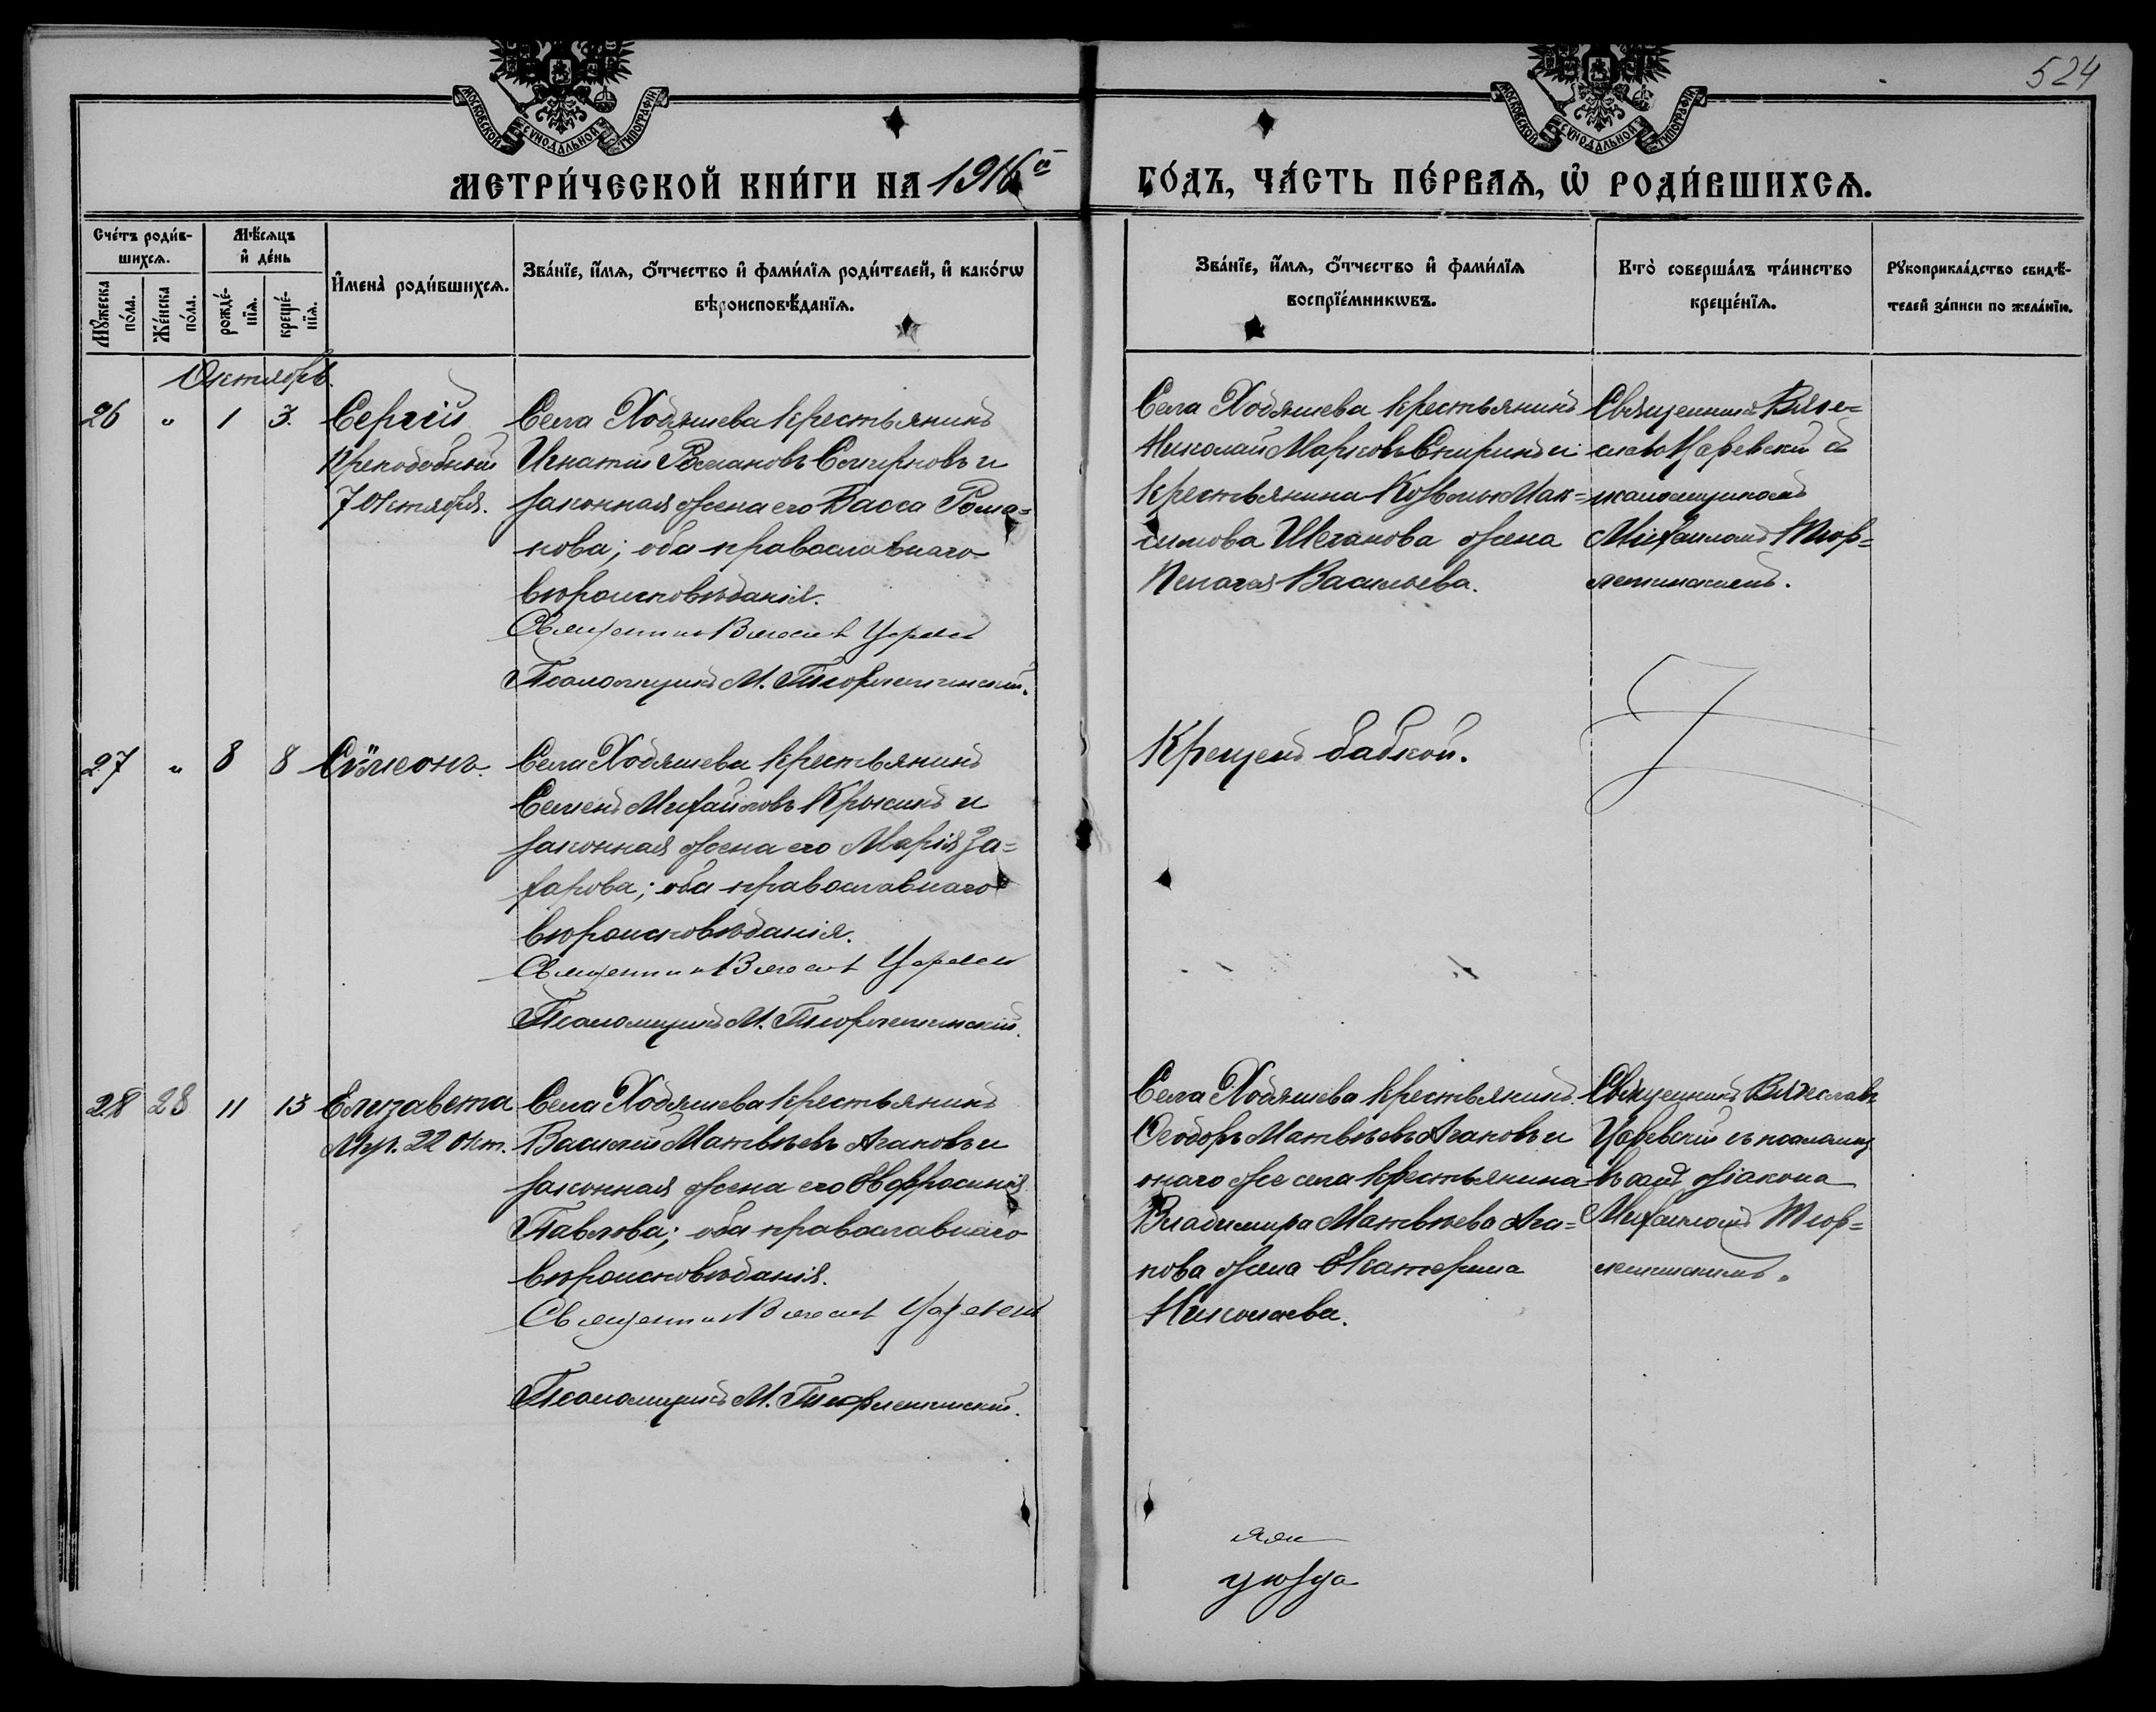 524
МОСКОВСКОЙ СѴНОДАЛЬНОЙ ТИПОГРАФІИ
МОСКОВСКОЙ СѴНОДАЛЬНОЙ ТИПОГРАФІИ
МЕТРИ́ЧЕСКОЙ КНИ́ГИ НА 1916й
ГО́ДЪ, ЧА́СТЬ ПЕ́РВАѦ, Ѡ҆ РОДИ́ВШИХСѦ.
Сче́тъ роди́в-
шихсѧ.
Мꙋ́жеска
по́ла.
Же́нска
по́ла.
Мѣ́сѧцъ
и҆ де́нь
рожде́-
нїѧ.
креще́-
нїѧ.
И҆мена̀ роди́вшихсѧ.
Зва́нїе, и҆́мѧ, ѻ҆́тчество и҆ фами́лїѧ роди́телей, и҆ како́гѡ
вѣроисповѣ́данїѧ.
Зва́нїе, и҆́мѧ, ѻ҆́тчество и҆ фами́лїѧ
воспрїе́мникѡвъ.
Кто̀ соверша́лъ та́инство
креще́нїѧ.
Рꙋкоприкла́дство свидѣ́-
телей за́писи по жела́нїю.
Октябрь.
26 " 1 3. Сергій
Преподобный
7 Октября.
Села Ходяшева крестьянинъ
Игнатій Романовъ Смирновъ и
законная жена его Васса Рома=
нова; оба православнаго
вѣроисповѣданія.
Священникъ Вячеслав Царевскі
Псаломщикъ М. Тиорлеминскій.
Села Ходяшева крестьянинъ
Николай Марковъ Спиринъ и
крестьянина Козьмы Мак=
симова Шеганова жена
Пелагея Васильева.
Священникъ Вяче=
славъ Царевскій съ
псаломщикомъ
Михаиломъ Тиор=
леминскимъ.
27 " 8 8 Сѵмеонъ.
Села Ходяшева крестьянинъ
Семенъ Михайловъ Крюкинъ и
законная жена его Марія За=
харова; оба православнаго
вѣроисповѣданія.
Священник Вячеслав Царевскі
Псаломщикъ М. Тиорлеминскій.
Крещенъ бабкой.
28 28 11 13 Елизавета
Муч. 22 Окт.
Села Ходяшева крестьянинъ
Василій Матвѣевъ Агаковъ и
законная жена его Евфросинія
Павлова; оба православнаго
вѣроисповѣданія.
Священник Вячеслав Царевскі
Псаломщикъ М. Тиорлеминскій.
Села Ходяшева крестьянинъ
Ѳеодоръ Матвѣевъ Агаковъ и
онаго же села крестьянина
Владимира Матвѣева Ага=
кова жена Екатерина
Николаева.
Священникъ Вячеславъ
Царевскій съ псаломщ
діакона
Михаиломъ Тиор=
леминскимъ.
уѣзда